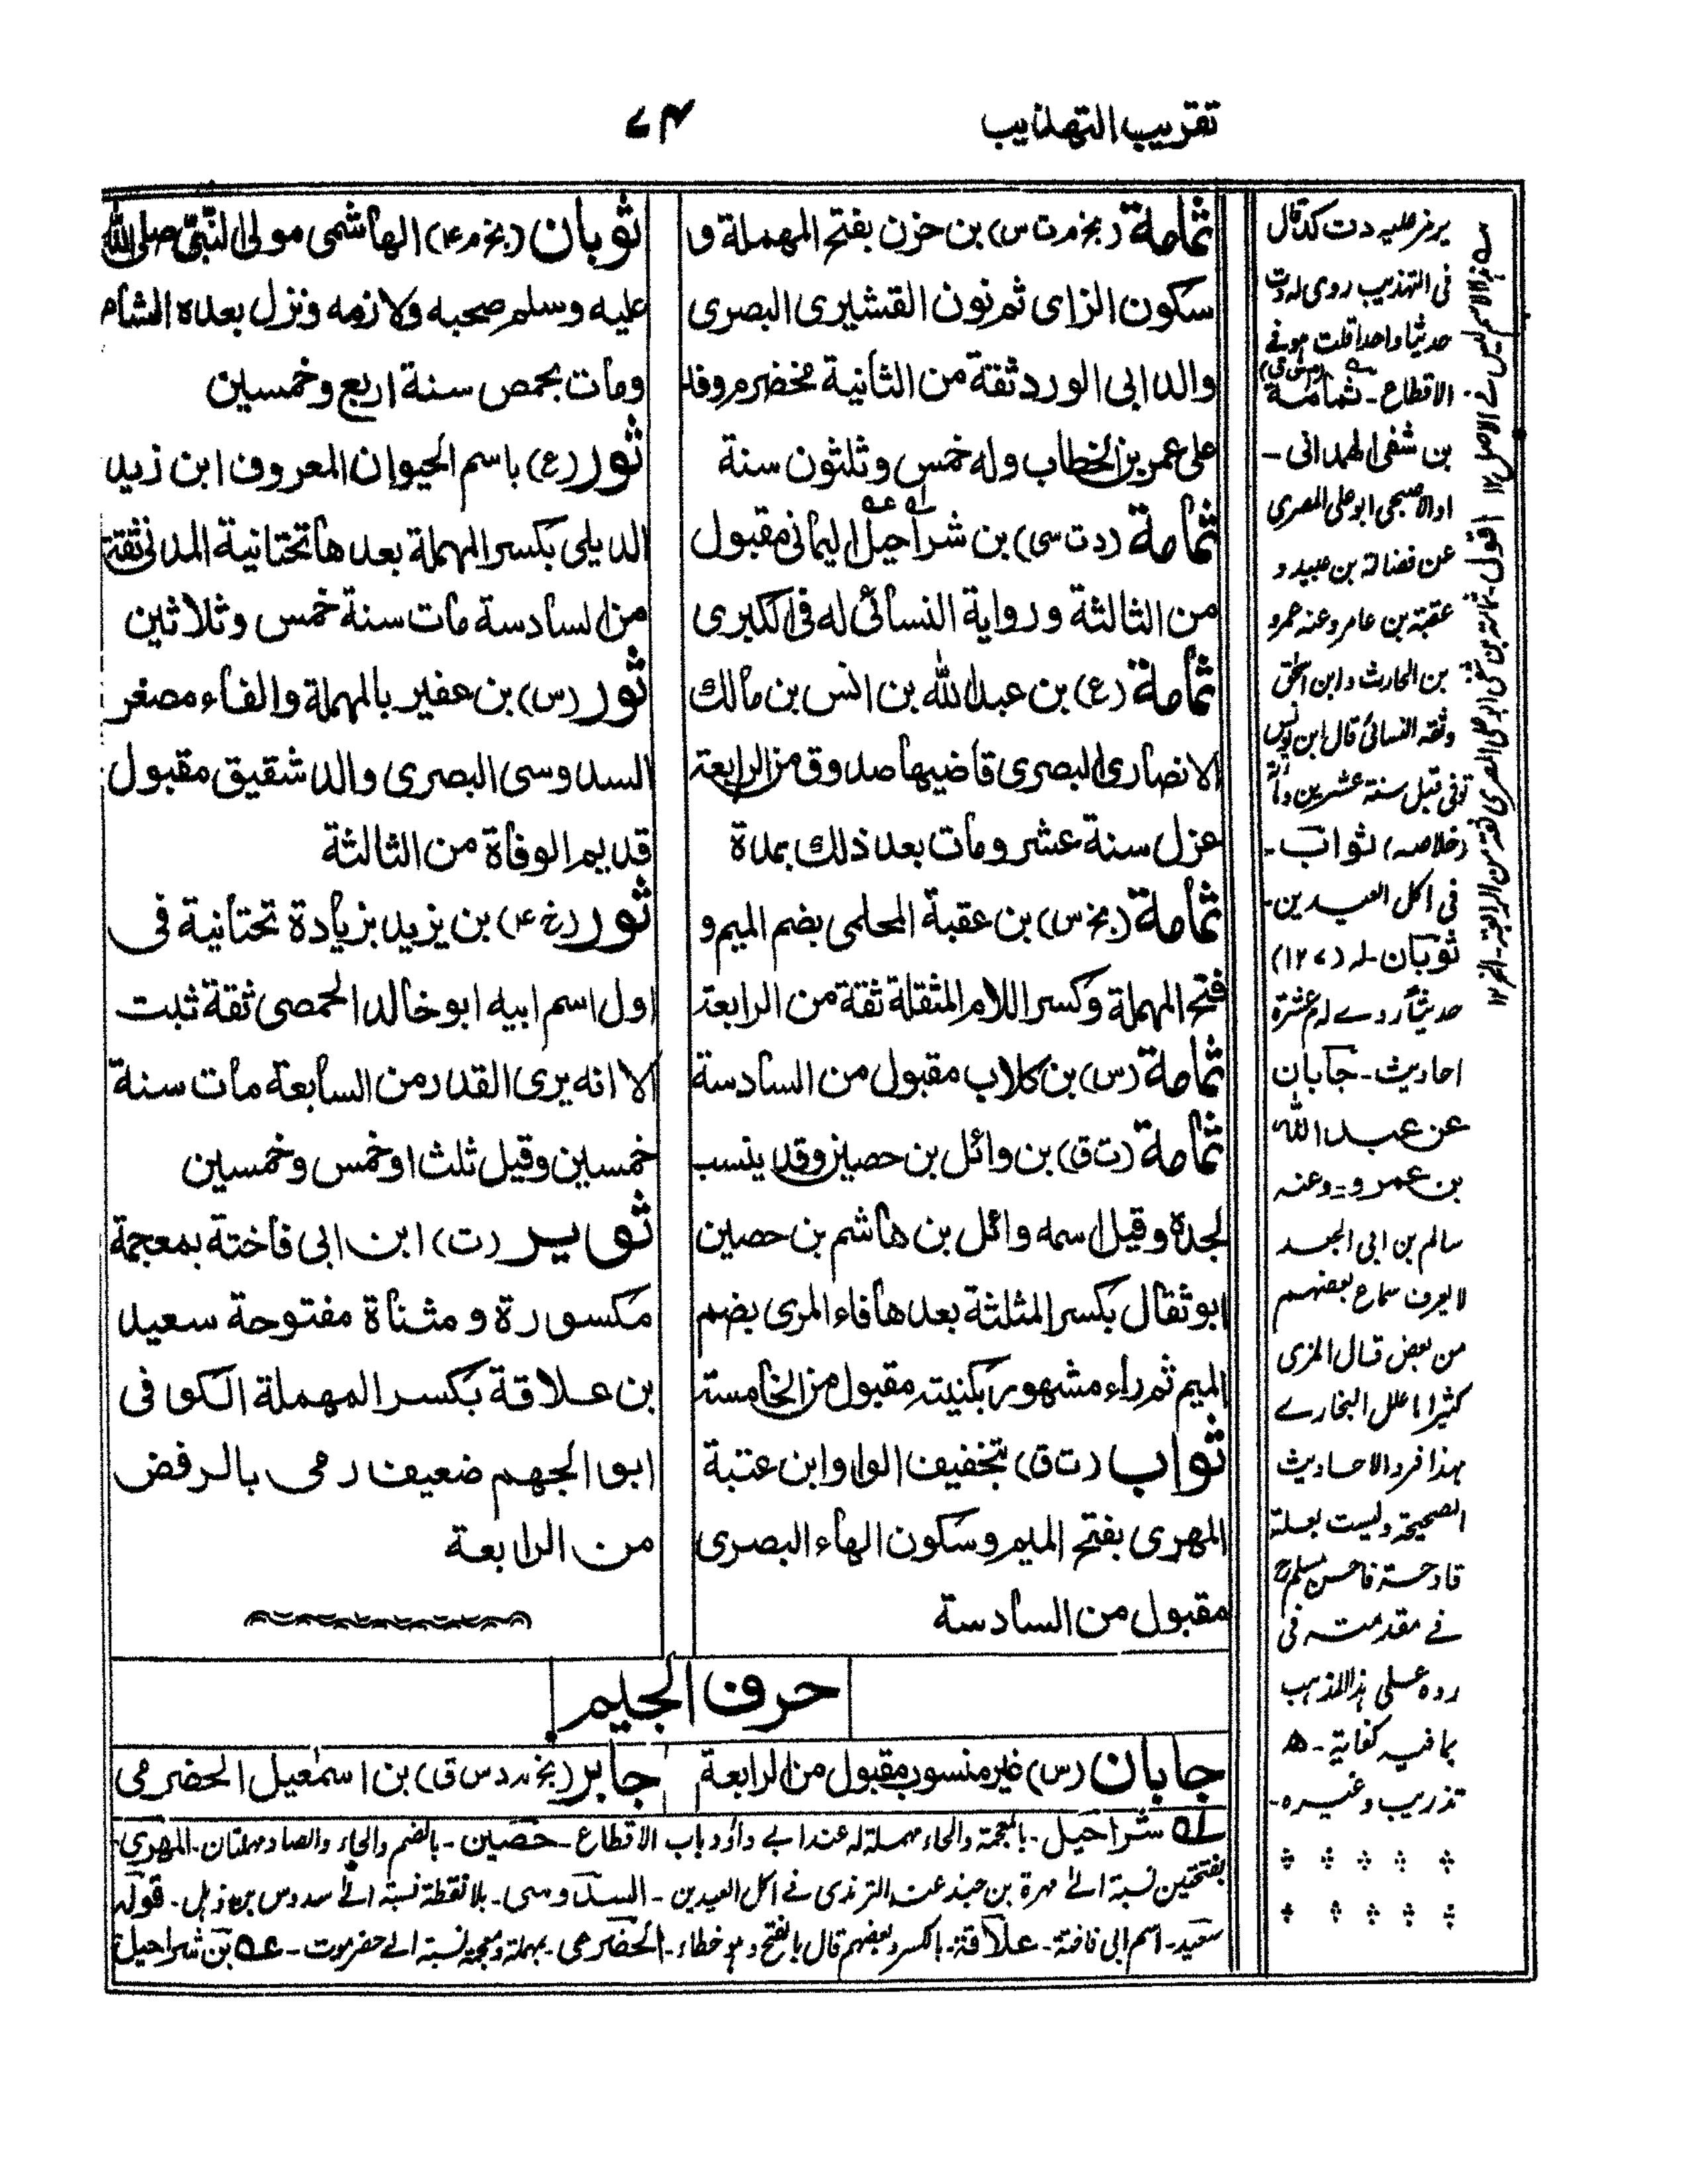 تقريب التهذيب
٧٤
ثمامة (بخ م ت س) بن حزن بفتح المهملة و
سكون الزاى ثم نون القشيرى البصرى
والد ابى الورد ثقة من الثانية مخضرم وفد
على عمر بن الخطاب وله خمس وثلثون سنة
ثمامة (د ت سى) بن شراحيل اليمانى مقبول
من الثالثة ورواية النسائى له فى الكبرى
ثمامة (ع) بن عبد الله بن انس بن مالك
الانصارى البصرى قاضيها صدوق من الرابعة
عزل سنة عشر ومات بعد ذلك بمدة
ثمامة (بخ س) بن عقبة المحلمى بضم الميم و
فتح المهملة وكسر اللام المثقلة ثقة من الرابعة
ثمامة (س) بن كلاب مقبول من السادسة
ثمامة (ت ق) بن وائل بن حصين وقد ينسب
لجده وقيل اسمه وائل بن هاشم بن حصين
ابو ثفال بكسر المثلثة بعدها فاء المرى بضم
الميم ثم راء مشهور بكنيته مقبول من الخامسة
ثواب (ت ق) بتخفيف الواو ابن عتبة
المهرى بفتح الميم وسكون الهاء البصرى
مقبول من السادسة
ثوبان (بخ م ٤) الهاشمى مولى النبى صلى الله
عليه وسلم صحبه ولازمه ونزل بعده الشام
ومات بحمص سنة اربع وخمسين
ثور (ع) باسم الحيوان المعروف ابن زيد
الديلى بكسر المهملة بعدها تحتانية المدنى ثقة
من السادسة مات سنة خمس وثلاثين
ثور (س) بن عفير بالمهملة والفاء مصغر
السدوسى البصرى والد شقيق مقبول
قديم الوفاة من الثالثة
ثور (خ ٤) بن يزيد بزيادة تحتانية فى
اول اسم ابيه ابو خالد الحمصى ثقة ثبت
الا انه يرى القدر من السابعة مات سنة
خمسين وقيل ثلث او خمس وخمسين
ثوير (ت) ابن ابى فاختة بمعجمة
مكسورة ومثناة مفتوحة سعيد
بن علاقة بكسر المهملة الكوفى
ابو الجهم ضعيف رمى بالرفض
من الرابعة
حرف الجيم
جابان (س) غير منسوب مقبول من الرابعة
جابر (بخ مد د س ق) بن اسمٰعيل الحضرمى
له شراحيل- بالمعجمة والحاء مهملة له عند ابے داؤد باب الاقطاع- حصين- بالضم والحاء والصاد مهملتان- المهرى
بفتحتين نسبة الے مهرة بن حيد عند الترمذى فے اكل العيدين- السدوسى- بلا نقطة نسبة الے سدوس بن ذهل- قوله
سعيد- اسم ابى فاختة- علاقة- بالكسر وبعضهم قال بالفتح وهو خطاء- الحضرمى- بمهملة ومعجمة نسبة الے حضرموت- عه بن شراحيل
يرمز عليه دت كذا قال
فى التهذيب روى له دت
حديثا واحدا قلت هو فے
الاقطاع- ثمامة
بن شفى الهمدانى-
او الاصبحى ابو على المصرى
عن فضالة بن عبيد و
عقبة بن عامر وعنه عمرو
بن الحارث وابن اسحٰق
وثقه النسائى قال ابن يونس
توفى قبل سنة عشرين ومأة
(خلاصه) ثواب-
فى اكل العيدين-
ثوبان- له (١٢٧)
حديثاً روے له م عشرة
احاديث- جابان
عن عبد الله
بن عمرو- وعنه
سالم بن ابى الجعد
لا يعرف سماع بعضهم
من بعض قال المزى
كثيرا ما علل البخارے
بهذا فرد الاحاديث
الصحيحة وليست بعلة
قادحة فاحسن مسلم رح
فے مقدمته فى
رده على هذا المذهب
بما فيه كفاية- ه
تدريب وغيره-
هذا الاسم ليس فے الاصل ١٢ اقول- ثمامة بن شفى ابو على المصرى ثقة من الرابعة- الخ ١٢